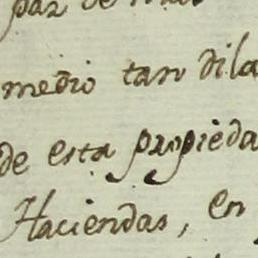 paz de
medio tan dila
de esta propieda
Haciendas, en